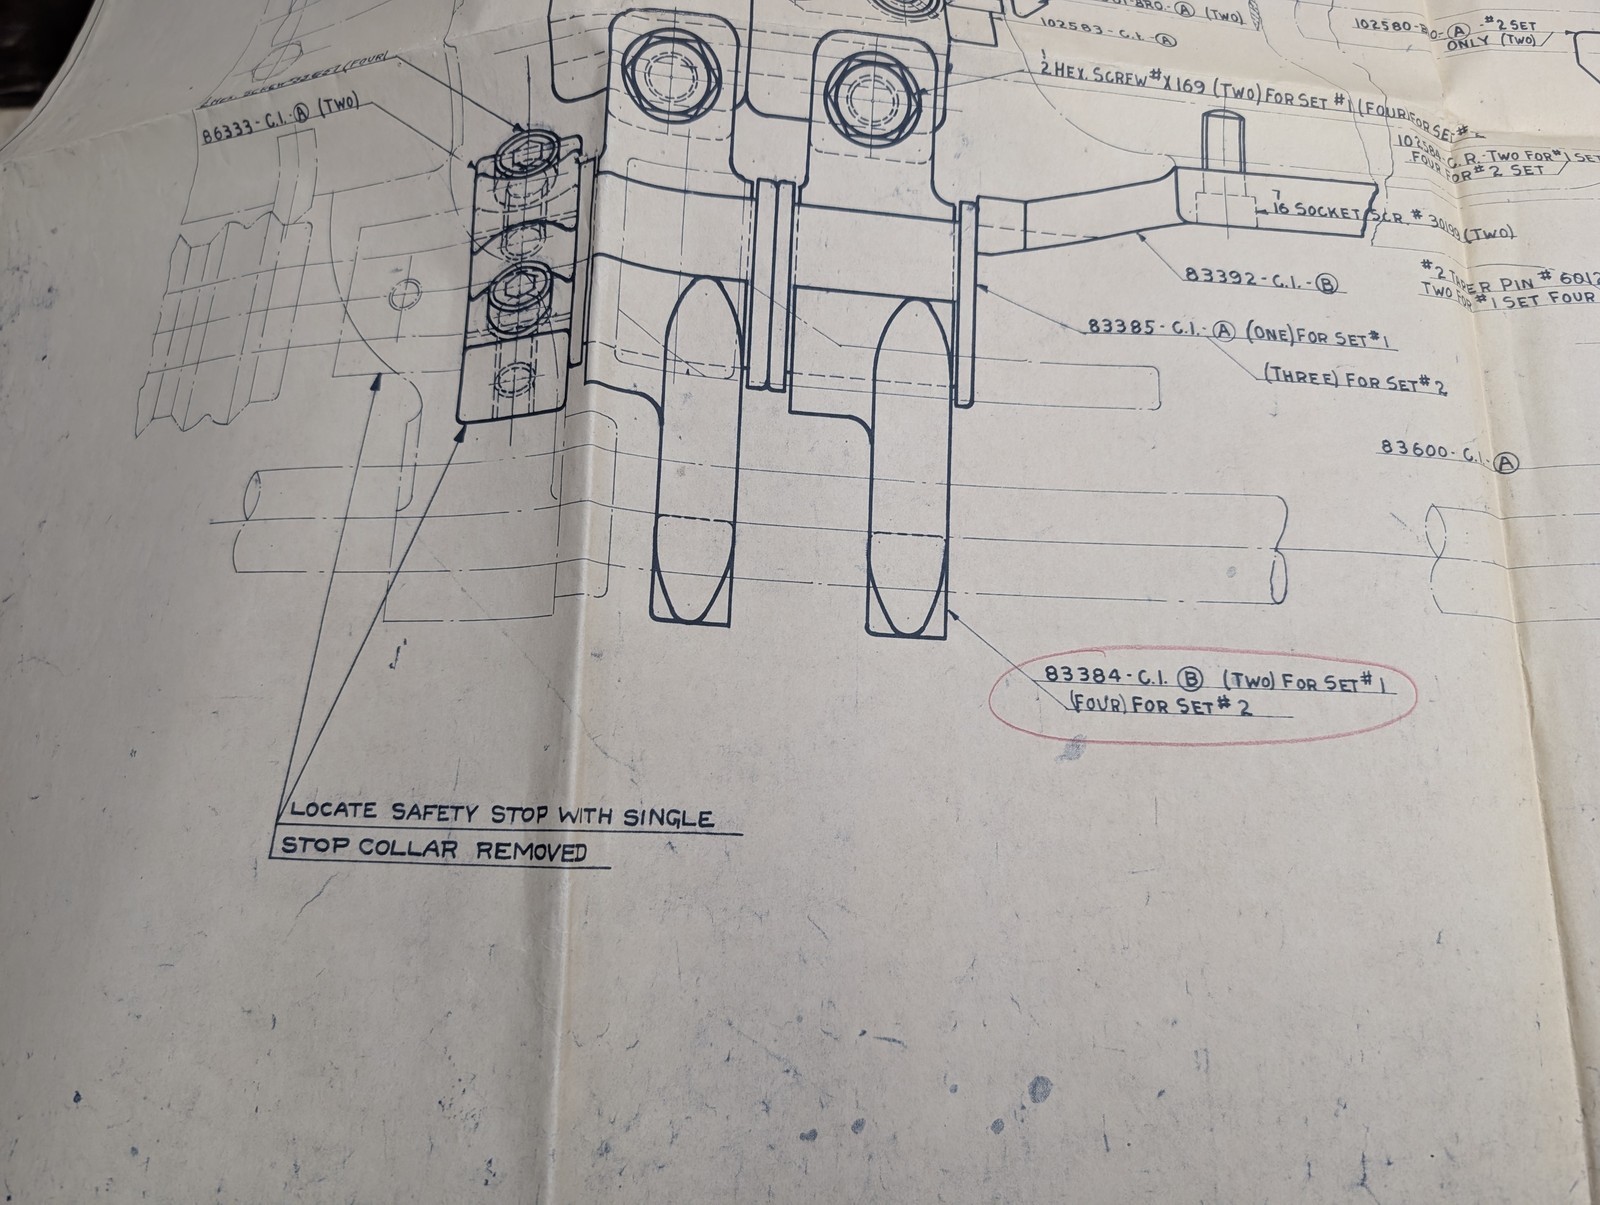 BRO.-Ⓐ (TWO)
102583-C.I.-Ⓐ
102580-BRO-Ⓐ-#2 SET
ONLY (TWO)
½ HEX. SCREW #X169 (TWO) FOR SET #1 (FOUR) FOR SET #2
86333-C.I.-Ⓐ (TWO)
102584-C.R.-TWO FOR #1 SET
FOUR FOR #2 SET
7/16 SOCKET SCR # 30199 (TWO)
83392-C.I.-Ⓑ
#2 TAPER PIN # 6012
TWO FOR #1 SET FOUR
83385-C.I.-Ⓐ (ONE) FOR SET #1
(THREE) FOR SET #2
83600-C.I.-Ⓐ
83384-C.I. Ⓑ (TWO) FOR SET #1
(FOUR) FOR SET #2
LOCATE SAFETY STOP WITH SINGLE
STOP COLLAR REMOVED